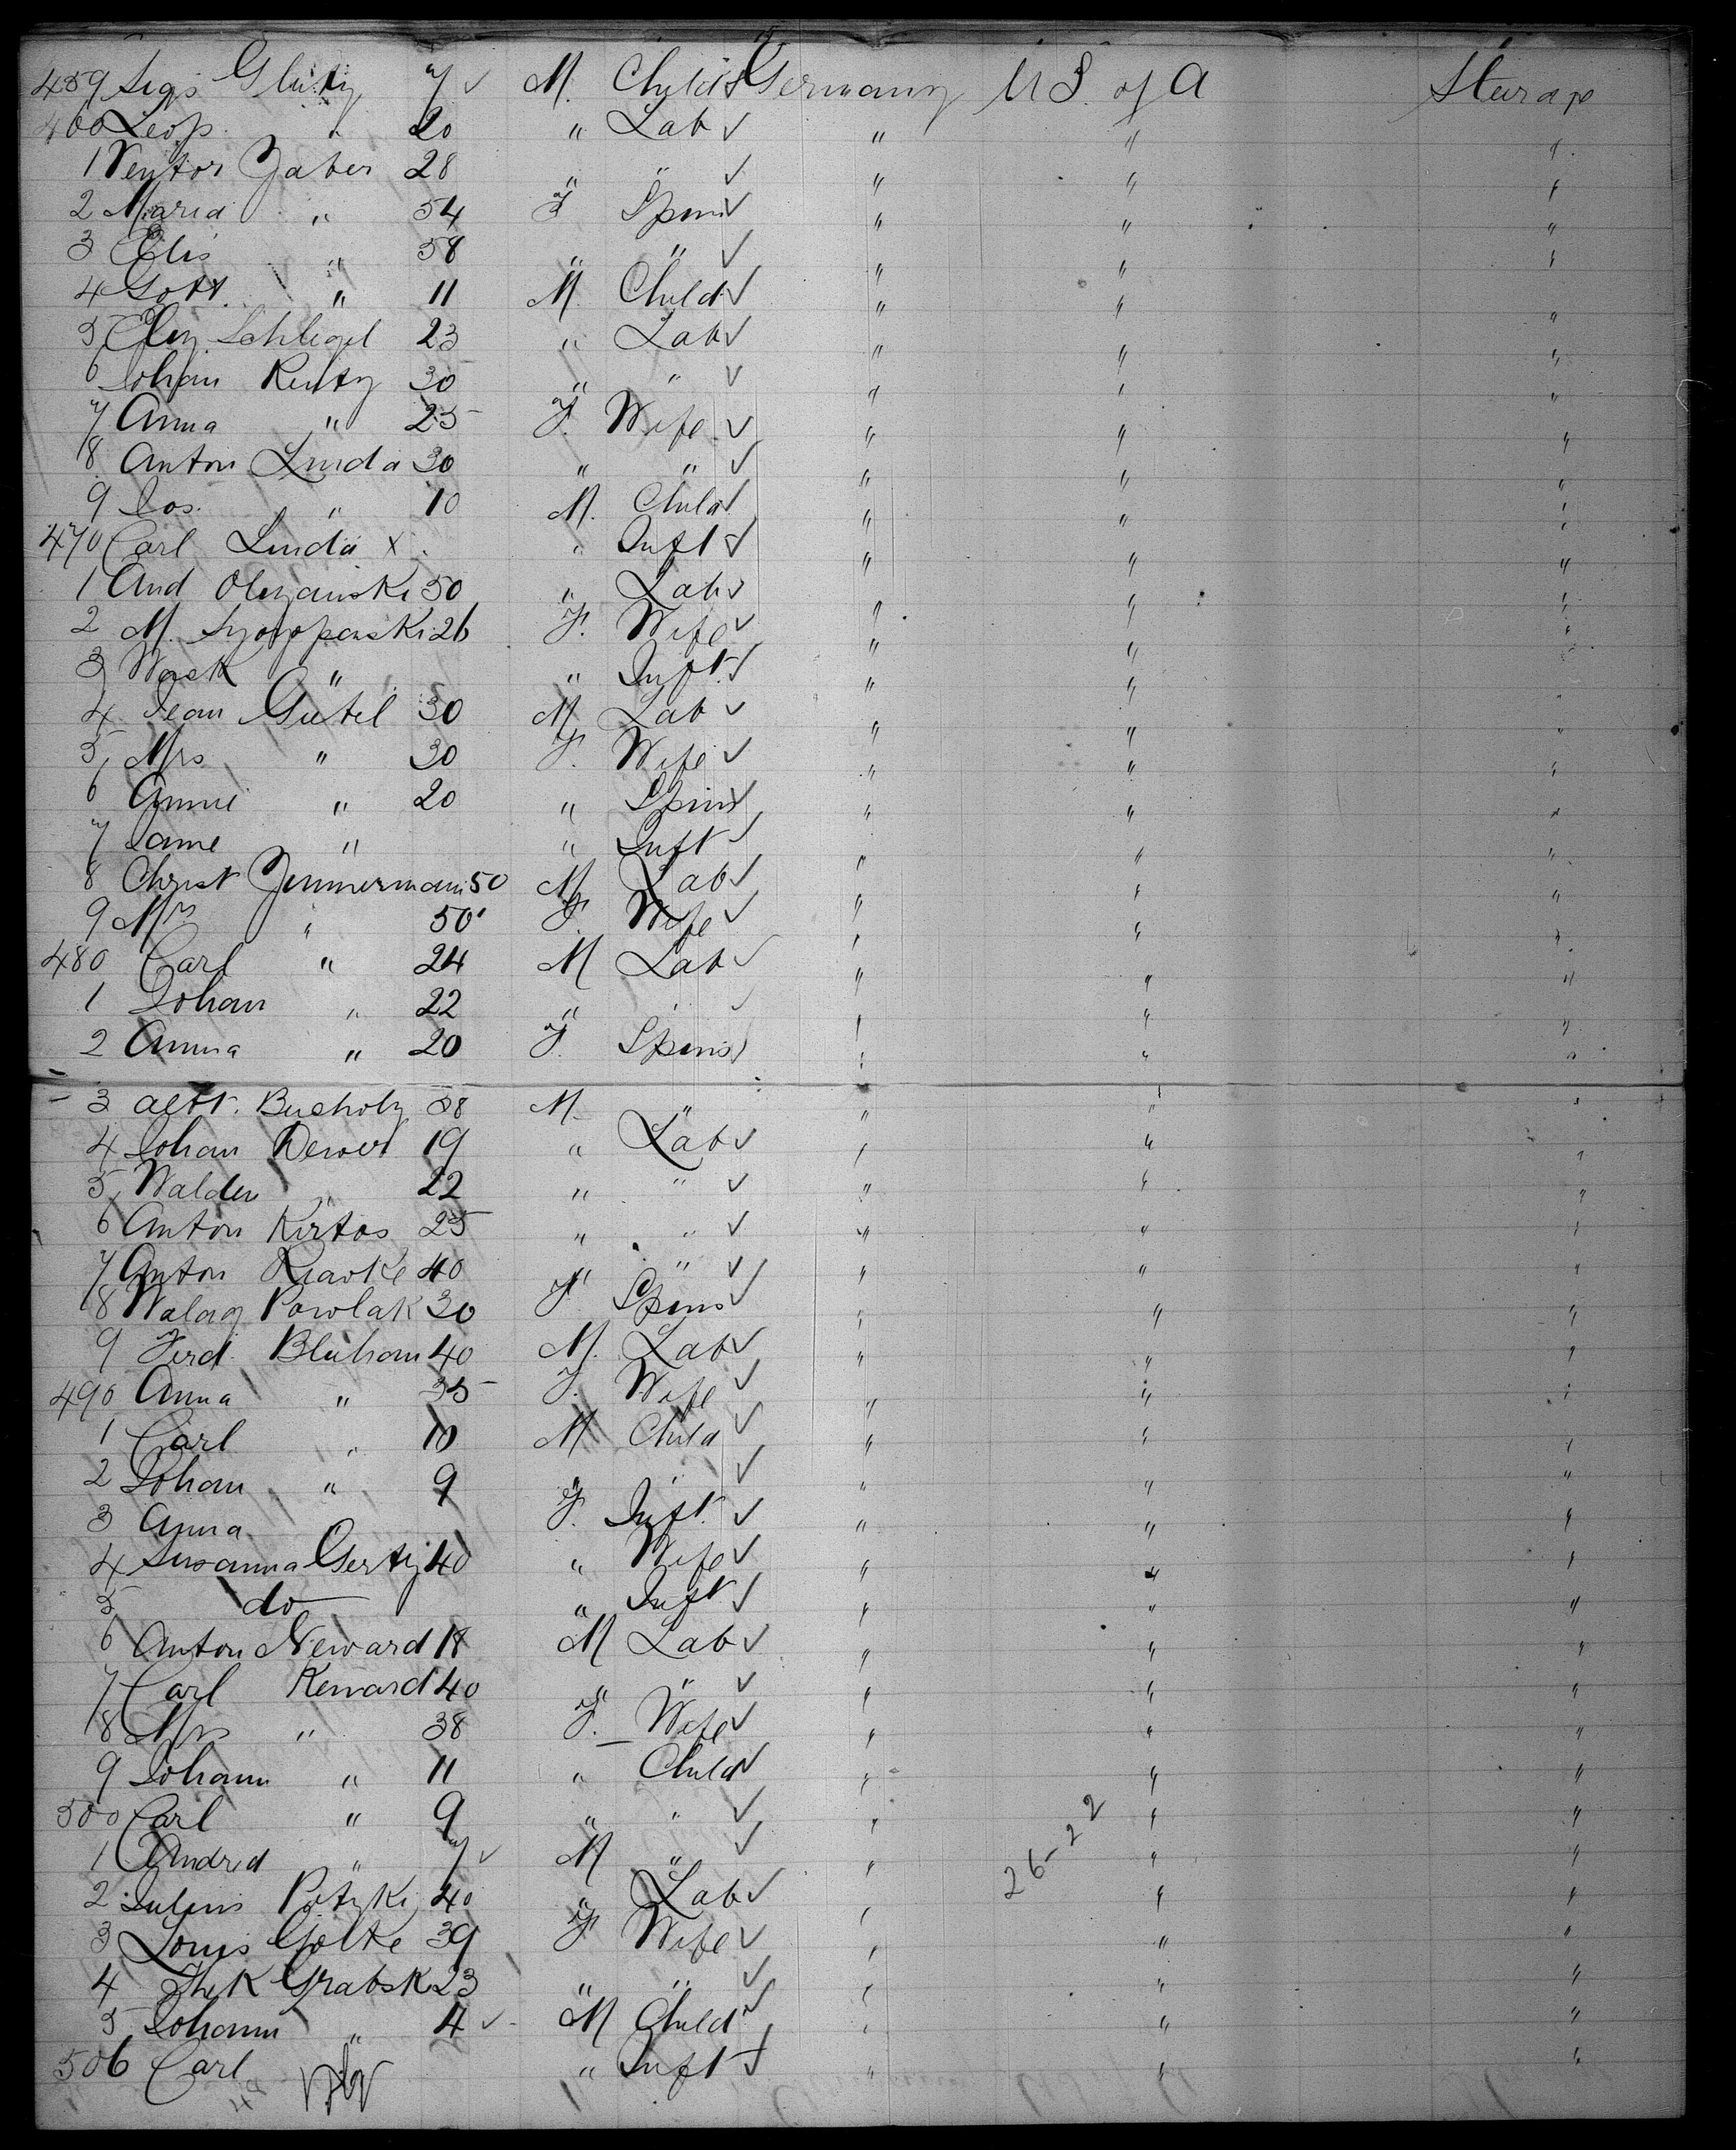 459 Sigs Glutz 7 ✓ M. Child ✓ Germany U S. of A Sterage
460 Leop. " 20 " Lab ✓ " " "
1 Ventor Zaber 28 " " ✓ " " "
2 Maria " 54 F Spins ✓ " " "
3 Elis " 58 " " ✓ " " "
4 Gott. " 11 M. Child ✓ " " "
5 Schlegel 23 " Lab ✓ " " "
6 Johan Rentz 30 " " ✓ " " "
7 Anna " 25 F. Wife ✓ " " "
8 Anton Linda 30 " " ✓ " " "
9 Jos. " 10 M. Child ✓ " " "
470 Carl Linda x " Inft ✓ " " "
1 And Olszanski 50 " Lab ✓ " " "
2 M. 26 F. Wife ✓ " " "
3 Wask " " Inft. ✓ " " "
4 Jean Gutel 30 M Lab ✓ " " "
5 Mrs " 30 F. Wife ✓ " " "
6 Annie " 20 " Spins ✓ " " "
7 Jame " " Inft ✓ " " "
8 Christ Zimmermann 50 M Lab ✓ " " "
9 Mrs " 50 F. Wife ✓ " " "
480 Carl " 24 M Lab ✓ " " "
1 Johan " 22 " ✓ " " "
2 Anna " 20 F. Spins ✓ " " "
3 Bucholz 38 M. " " " "
4 Johan Dewer 19 " Lab ✓ " " "
5 Walden " 22 " " ✓ " " "
6 Anton Kirtos 25 " " ✓ " " "
7 Anton Kiavke 40 " " ✓ " " "
8 Walag Pawlak 30 F Spins ✓ " " "
9 Ferd. Bluham 40 M. Lab ✓ " " "
490 Anna " 35 F. Wife ✓ " " "
1 Carl " 10 M Child ✓ " " "
2 Johan " 9 " " ✓ " " "
3 Anna F. Inft. ✓ " " "
4 Susanna Gertz 40 " Wife ✓ " " "
5 do " Inft ✓ " " "
6 Anton Neward 18 M Lab ✓ " " "
7 Carl Renward 40 " " ✓ " " "
8 Mrs " 38 F. Wife ✓ " " "
9 Johann " 11 " Child ✓ " " "
500 Carl " 9 " " ✓ " " "
1 Andrd " 7 ✓ M " ✓ " " "
26-22
2 Julius Potzki 40 " Lab ✓ " " "
3 Louis Golke 39 F Wife ✓ " " "
4 Thek Grabski 23 " " ✓ " " "
5 Johann " 4 ✓ M Child ✓ " " "
506 Carl " Inft ✓ " " "